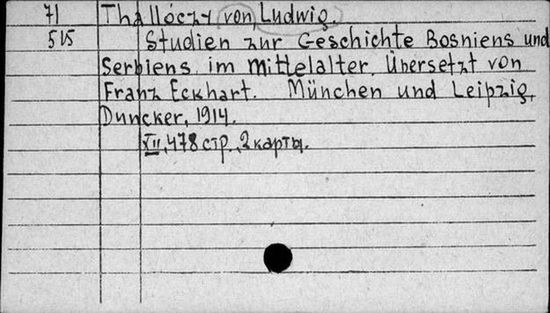 71 Thallóczy von Ludwig.
515 Studien zur Geschichte Bosniens und
Serbiens im Mittelalter. Übersetzt von
Franz Eckhart. München und Leipzig,
Duncker, 1914.
VII, 478 стр., 2 карты.